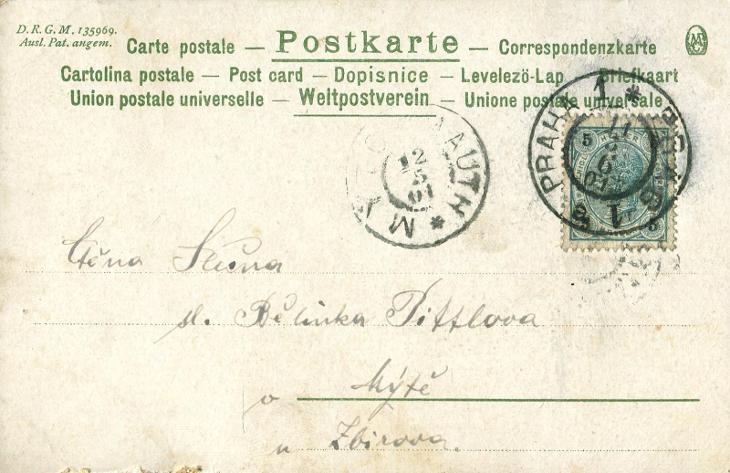 D. R. G. M. 135969.
Ausl. Pat. angem.
Carte postale — Postkarte — Correspondenzkarte
Cartolina postale — Post card — Dopisnice — Levelező-Lap — Briefkaart
Union postale universelle — Weltpostverein — Unione postale universale
PRAHA 1 * PRAG 1
MAUTH *
12
5
01
5
Ctěná Slečna
sl. Bělinka Pittlova
v Mýtě
u Zbirova.